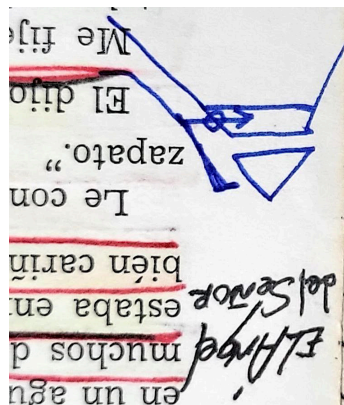 en un agu
muchos d
estaba en
bién cariñ
Le con
zapato."
El dijo
Me fije
EL Ángel
del SEÑOR